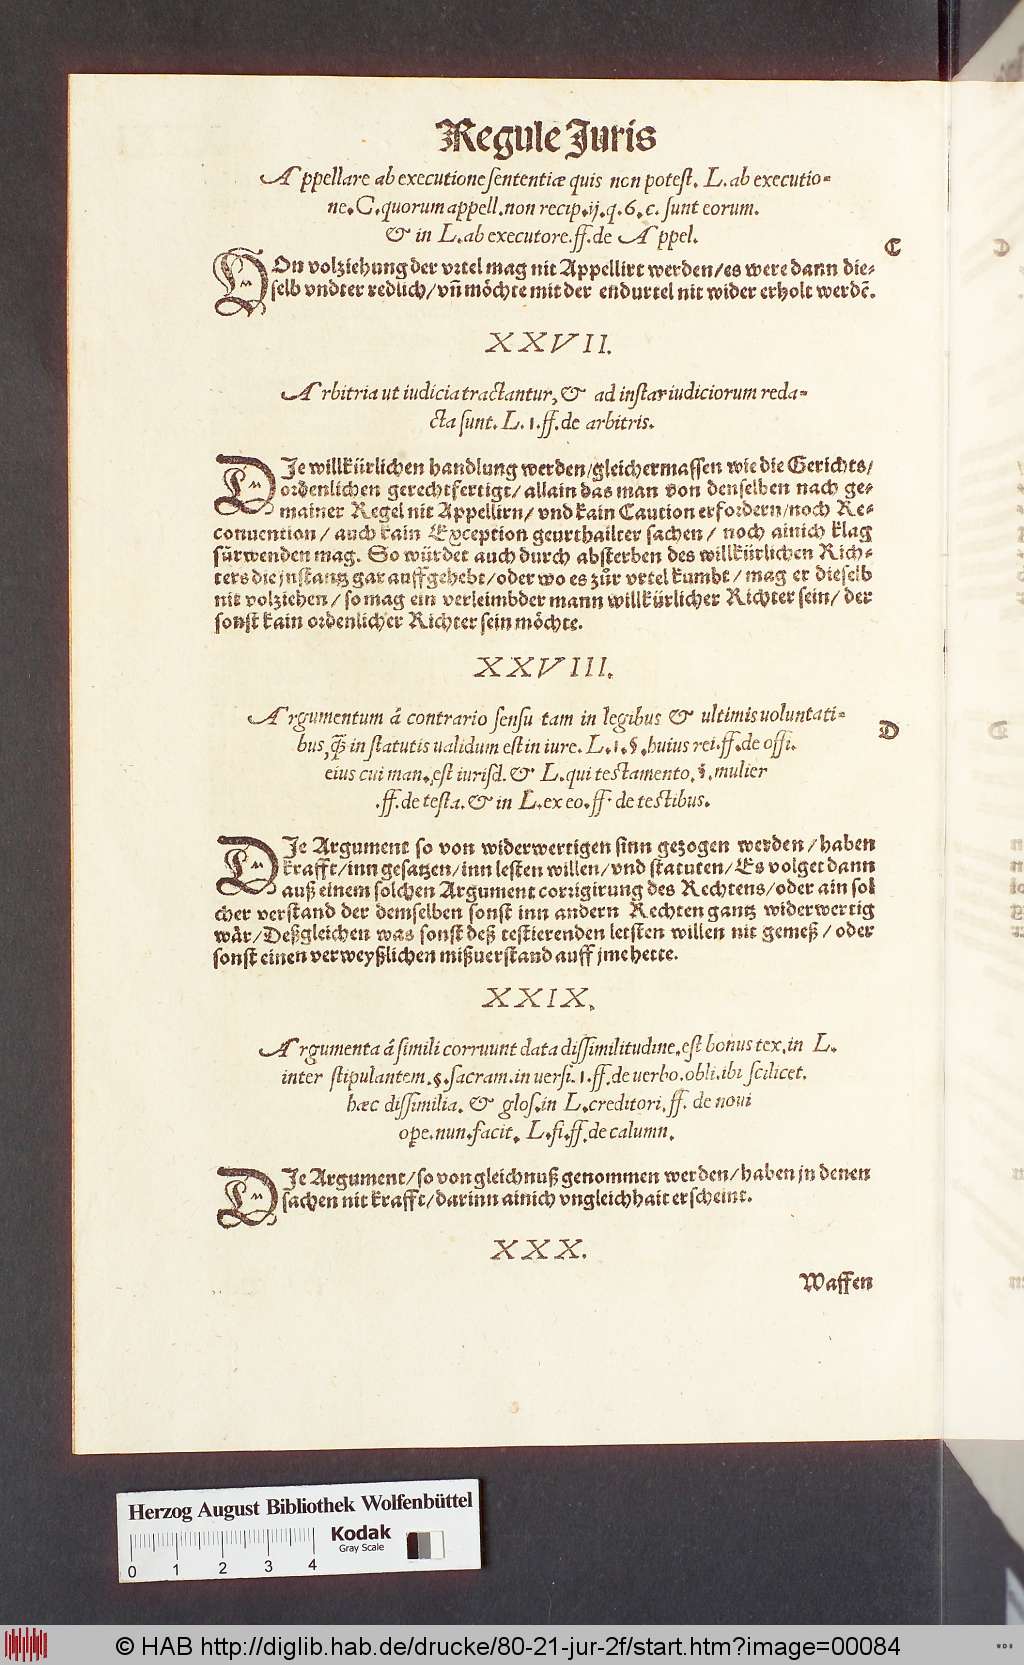 Regule Juris
Appellare ab executione sententiæ quis non potest. L. ab executio-
ne. C. quorum appell. non recip. ij. q. 6. c. sunt eorum.
& in L. ab executore. ff. de Appel.
C
VOn volziehung der vrtel mag nit Appellirt werden/ es were dann die-
selb vndter redlich/ vñ möchte mit der endurtel nit wider erholt werdẽ.
XXVII.
Arbitria ut iudicia tractantur, & ad instar iudiciorum reda-
cta sunt. L. 1. ff. de arbitris.
DJe willkürlichen handlung werden/ gleichermassen wie die Gerichts/
ordenlichen gerechtfertigt/ allain das man von denselben nach ge-
mainer Regel nit Appellirn/ vnd kain Caution erfordern/ noch Re-
conuention/ auch kain Exception geurthailter sachen/ noch ainich klag
fürwenden mag. So würdet auch durch absterben des willkürlichen Rich-
ters die jnstantz gar auffgehebt/ oder wo es zůr vrtel kumbt/ mag er dieselb
nit volziehen/ so mag ein verleimbder mann willkürlicher Richter sein/ der
sonst kain ordenlicher Richter sein möchte.
XXVIII.
Argumentum á contrario sensu tam in legibus & ultimis uoluntati-
D
bus, q̃ꝫ in statutis ualidum est in iure. L. 1. §. huius rei. ff. de offi.
eius cui man. est iurisd. & L. qui testamento. §. mulier
.ff. de testa. & in L. ex eo. ff. de testibus.
DJe Argument so von widerwertigen sinn gezogen werden/ haben
krafft/ inn gesatzen/ inn lesten willen/ vnd statuten/ Es volget dann
auß einem solchen Argument corrigirung des Rechtens/ oder ain sol
cher verstand der demselben sonst inn andern Rechten gantz widerwertig
wår/ Deßgleichen was sonst deß testierenden letsten willen nit gemeß/ oder
sonst einen verweyßlichen mißuerstand auff jme hette.
XXIX.
Argumenta á simili corruunt data dissimilitudine. est bonus tex. in L.
inter stipulantem. §. sacram. in uersi. 1. ff. de uerbo. obli. ibi scilicet.
hæc dissimilia. & glos. in L. creditori. ff. de noui
oꝑe. nun. facit. L. fi. ff. de calumn.
DJe Argument/ so von gleichnuß genommen werden/ haben jn denen
sachen nit krafft/ darinn ainich vngleichhait erscheint.
XXX.
Waffen
Herzog August Bibliothek Wolfenbüttel
Kodak
Gray Scale
0 1 2 3 4
© HAB http://diglib.hab.de/drucke/80-21-jur-2f/start.htm?image=00084